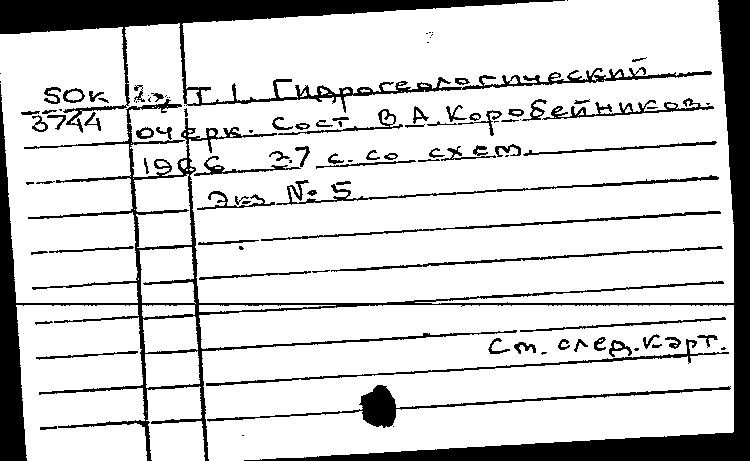 50к Т. 1. Гидрогеологический
3744 очерк. Сост. В. А. Коробейников.
1966. 37 с. со схем.
Экз. № 5.
См. след. карт.